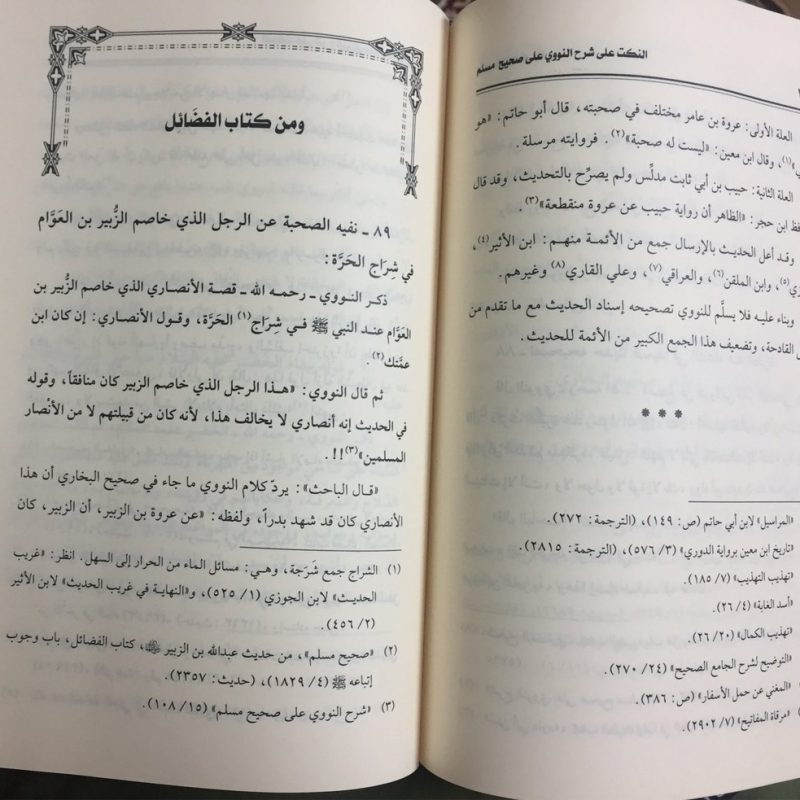 النكت على شرح النووي على صحيح مسلم
العلة الأولى: عروة بن عامر مختلف في صحبته، قال أبو حاتم: «هو
(١)، وقال ابن معين: «ليست له صحبة»(٢). فروايته مرسلة.
العلة الثانية: حبيب بن أبي ثابت مدلِّس ولم يصرِّح بالتحديث، وقد قال
ابن حجر: «الظاهر أن رواية حبيب عن عروة منقطعة»(٣).
وقد أعل الحديث بالإرسال جمع من الأئمة منهم: ابن الأثير(٤)،
(٥)، وابن الملقن(٦)، والعراقي(٧)، وعلي القاري(٨) وغيرهم.
وبناء عليه فلا يسلَّم للنووي تصحيحه إسناد الحديث مع ما تقدم من
القادحة، وتضعيف هذا الجمع الكبير من الأئمة للحديث.
* * *
«المراسيل» لابن أبي حاتم (ص: ١٤٩)، (الترجمة: ٢٧٢).
«تاريخ ابن معين برواية الدوري» (٣/ ٥٧٦)، (الترجمة: ٢٨١٥).
«تهذيب التهذيب» (٧/ ١٨٥).
«أسد الغابة» (٤/ ٢٦).
«تهذيب الكمال» (٢٠/ ٢٦).
«التوضيح لشرح الجامع الصحيح» (٢٤/ ٢٧٠).
«المغني عن حمل الأسفار» (ص: ٣٨٦).
«مرقاة المفاتيح» (٧/ ٢٩٠٢).
ومن كتاب الفضَائل
٨٩ ـ نفيه الصحبة عن الرجل الذي خاصم الزُّبير بن العَوَّام
في شِرَاج الحَرَّة:
ذكر النووي ـ رحمه الله ـ قصة الأنصاري الذي خاصم الزُّبير بن
العَوَّام عند النبي ﷺ في شِرَاج(١) الحَرَّة، وقول الأنصاري: إن كان ابن
عمَّتك(٢).
ثم قال النووي: «هذا الرجل الذي خاصم الزبير كان منافقاً، وقوله
في الحديث إنه أنصاري لا يخالف هذا، لأنه كان من قبيلتهم لا من الأنْصار
المسلمين»(٣)!!.
«قال الباحث»: يردّ كلام النووي ما جاء في صحيح البخاري أن هذا
الأنصاري كان قد شهد بدراً، ولفظه: «عن عروة بن الزبير، أن الزبير، كان
(١) الشراج جمع شَرَجة، وهي: مسائل الماء من الحرار إلى السهل. انظر: «غريب
الحديث» لابن الجوزي (١/ ٥٢٥)، و«النهاية في غريب الحديث» لابن الأثير
(٢/ ٤٥٦).
(٢) «صحيح مسلم»، من حديث عبدالله بن الزبير ، كتاب الفضائل، باب وجوب
إتباعه ﷺ (٤/ ١٨٢٩)، (حديث: ٢٣٥٧).
(٣) «شرح النووي على صحيح مسلم» (١٥/ ١٠٨).